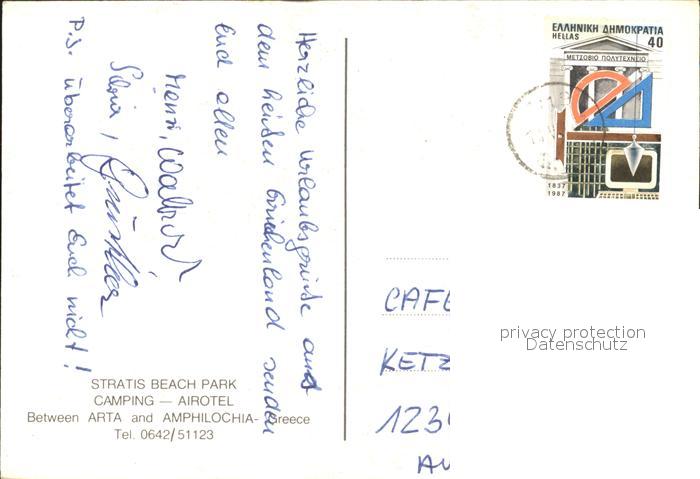 Herzliche Urlaubsgrüße aus
dem heißen Griechenland senden
Euch allen
Walter
Silvia,
P.S. Überarbeitet Euch nicht!
STRATIS BEACH PARK
CAMPING — AIROTEL
Between ARTA and AMPHILOCHIA- Greece
Tel. 0642/51123
ΕΛΛΗΝΙΚΗ ΔΗΜΟΚΡΑΤΙΑ
HELLAS 40
ΜΕΤΣΟΒΙΟ ΠΟΛΥΤΕΧΝΕΙΟ
1837
1987
CAFE
KETZ
123
AU
privacy protection
Datenschutz